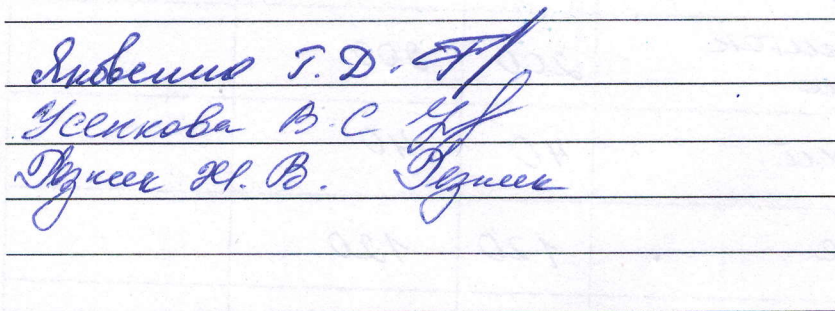 Яковенко Г. Д.
Усенкова В. С
Резник Н. В. Резник